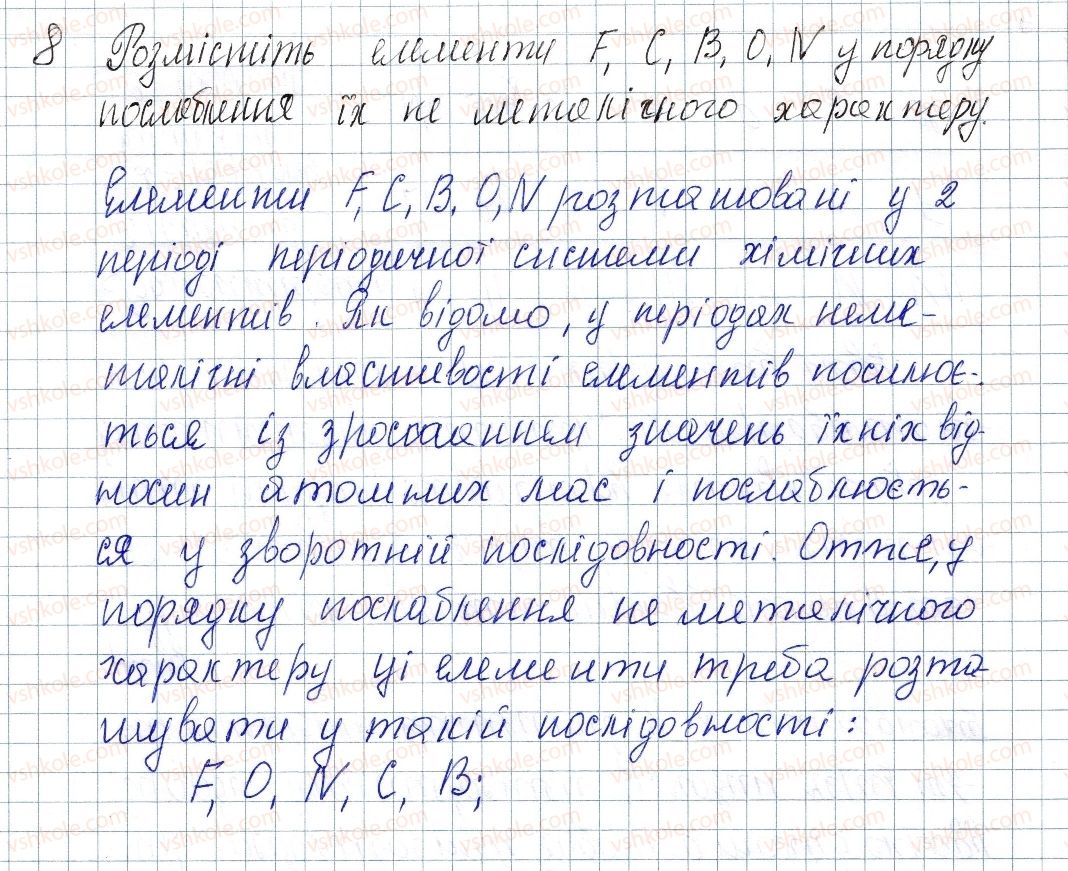 8 Розмістіть елементи F, C, B, O, N у порядку
послаблення їх не металічного характеру.
Елементи F, C, B, O, N розташовані у 2
періоді періодичної системи хімічних
елементів. Як відомо, у періодах неме-
талічні властивості елементів посилює-
ться із зростанням значень їхніх від-
носин атомних мас і послаблюєть-
ся у зворотній послідовності. Отже, у
порядку послаблення не металічного
характеру ці елементи треба розта-
шувати у такій послідовності:
F, O, N, C, B;